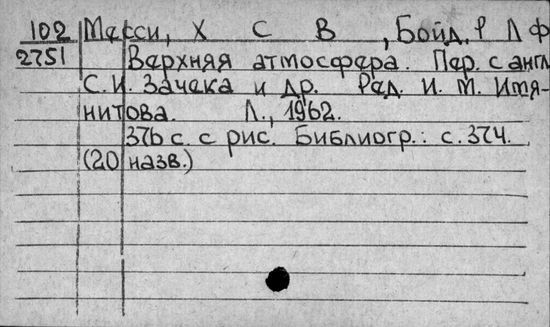 102 Масси, Х С В, Бойд, Р Л Ф
2751 Верхняя атмосфера. Пер. с англ
С.И. Зачека и др. Ред. И. М. Имя-
нитова. Л., 1962.
376 с. с рис. Библиогр.: с. 374.
(20 назв.)